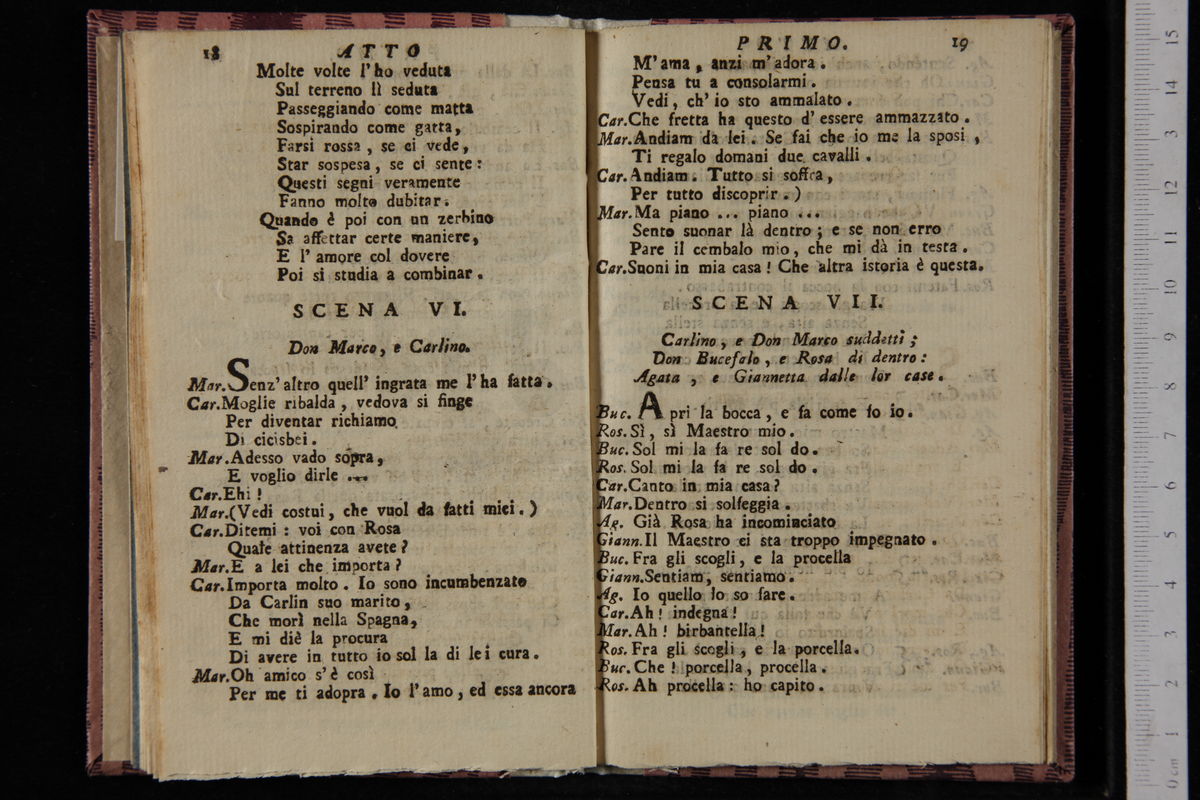 18 ATTO
Molte volte l'ho veduta
Sul terreno lì seduta
Passeggiando come matta
Sospirando come gatta,
Farsi rossa, se ci vede,
Star sospesa, se ci sente:
Questi segni veramente
Fanno molto dubitar.
Quando è poi con un zerbino
Sa affettar certe maniere,
E l'amore col dovere
Poi si studia a combinar.
SCENA VI.
Don Marco, e Carlino.
Mar. Senz'altro quell'ingrata me l'ha fatta.
Car. Moglie ribalda, vedova si finge
Per diventar richiamo
Di cicisbei.
Mar. Adesso vado sópra,
E voglio dirle ...
Car. Ehi!
Mar. (Vedi costui, che vuol da fatti miei.)
Car. Ditemi: voi con Rosa
Quale attinenza avete?
Mar. E a lei che importa?
Car. Importa molto. Io sono incumbenzato
Da Carlin suo marito,
Che morì nella Spagna,
E mi diè la procura
Di avere in tutto io sol la di lei cura.
Mar. Oh amico s'è così
Per me ti adopra. Io l'amo, ed essa ancora
PRIMO. 19
M'ama, anzi m'adora.
Pensa tu a consolarmi.
Vedi, ch'io sto ammalato.
Car. Che fretta ha questo d'essere ammazzato.
Mar. Andiam da lei. Se fai che io me la sposi,
Ti regalo domani due cavalli.
Car. Andiam. Tutto si soffra,
Per tutto discoprir.)
Mar. Ma piano ... piano ...
Sento suonar là dentro; e se non erro
Pare il cembalo mio, che mi dà in testa.
Car. Suoni in mia casa! Che altra istoria è questa.
SCENA VII.
Carlino, e Don Marco suddetti;
Don Bucefalo, e Rosa di dentro:
Agata, e Giannetta dalle lor case.
Buc. Apri la bocca, e fa come fo io.
Ros. Sì, sì Maestro mio.
Buc. Sol mi la fa re sol do.
Ros. Sol mi la fa re sol do.
Car. Canto in mia casa?
Mar. Dentro si solfeggia.
Ag. Già Rosa ha incominciato
Giann. Il Maestro ci sta troppo impegnato.
Buc. Fra gli scogli, e la procella
Giann. Sentiam, sentiamo.
Ag. Io quello lo so fare.
Car. Ah! indegna!
Mar. Ah! birbantella!
Ros. Fra gli scogli, e la porcella.
Buc. Che! porcella, procella.
Ros. Ah procella: ho capito.
0 cm 1 2 3 4 5 6 7 8 9 10 11 12 13 14 15